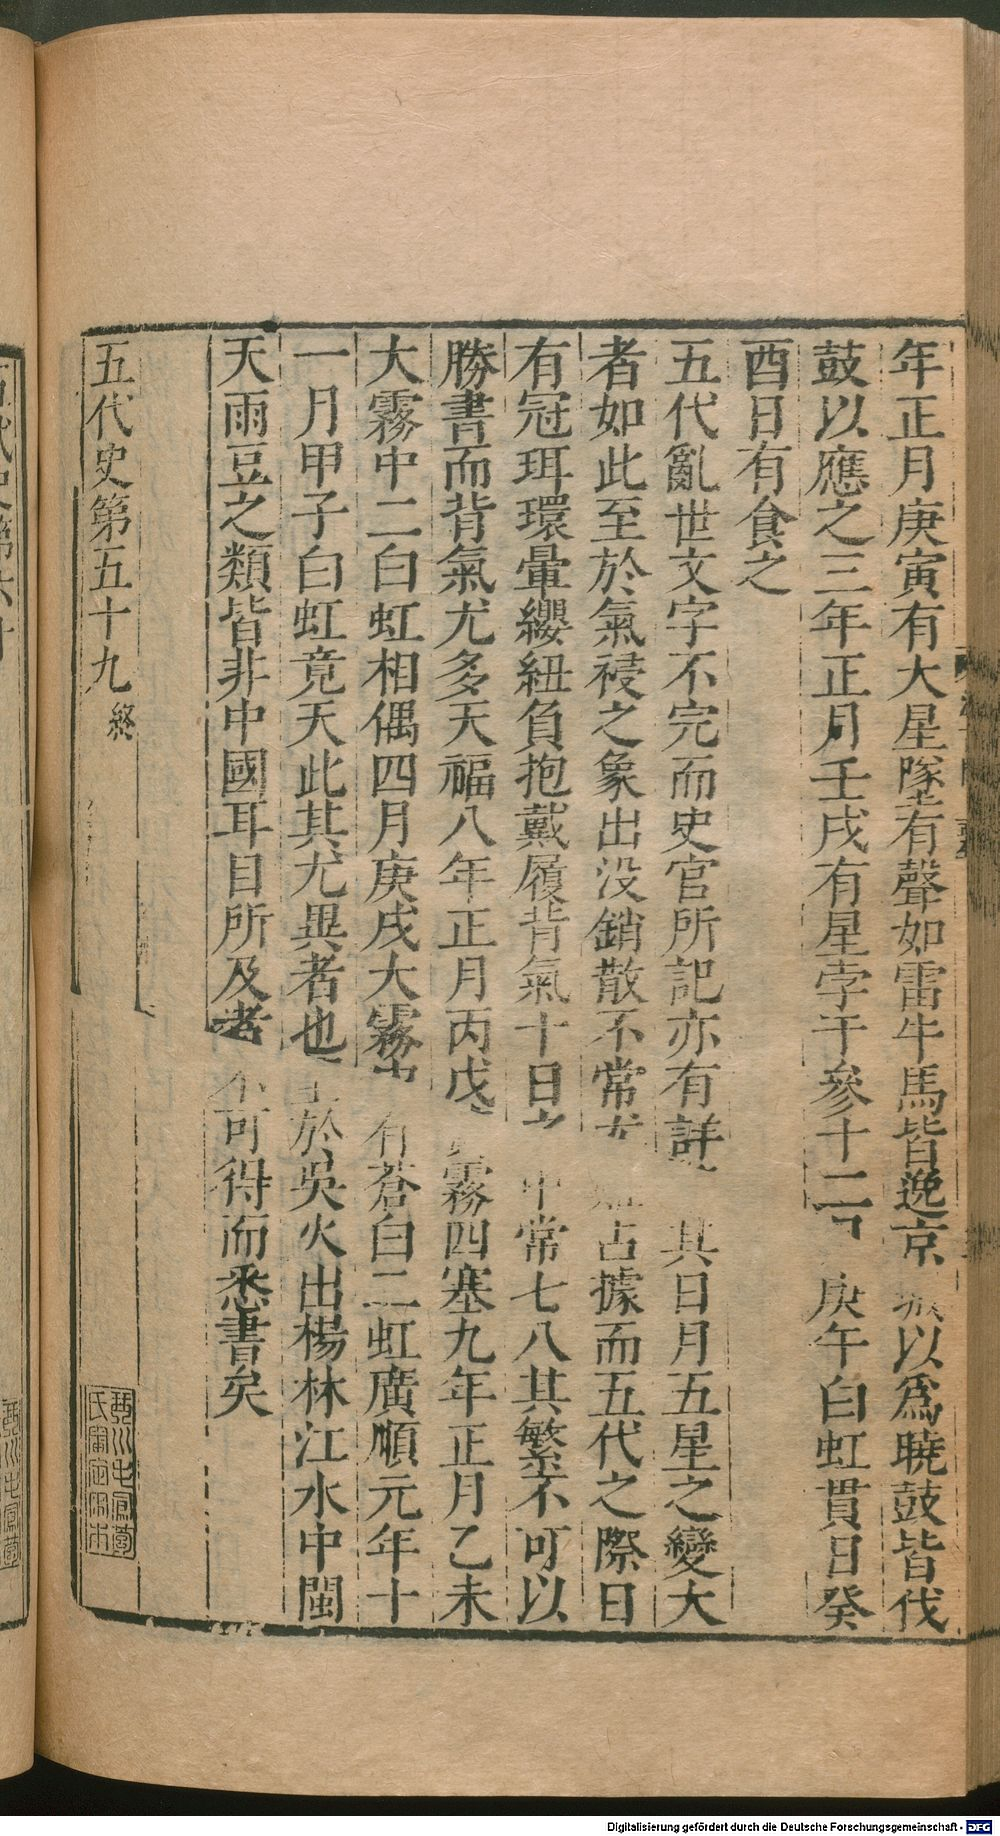 年正月庚寅有大星隊有聲如雷牛馬皆逸京城以爲曉鼓皆伐
鼓以應之三年正月壬戌有星孛于參十二庚午白虹貫日癸
酉日有食之
五代亂世文字不完而史官所記亦有詳其日月五星之變大
者如此至於氣祲之象出沒銷散不常尤占據而五代之際日
有冠珥環暈纓紐負抱戴履背氣十日之中常七八其繁不可以
勝書而背氣尤多天福八年正月丙戌霧四塞九年正月乙未
大霧中二白虹相偶四月庚戌大霧中有蒼白二虹廣順元年十
一月甲子白虹竟天此其尤異者也於吳火出楊林江水中閩
天雨豆之類皆非中國耳目所及者不可得而悉書矣
五代史第五十九終
Digitalisierung gefördert durch die Deutsche Forschungsgemeinschaft - DFG